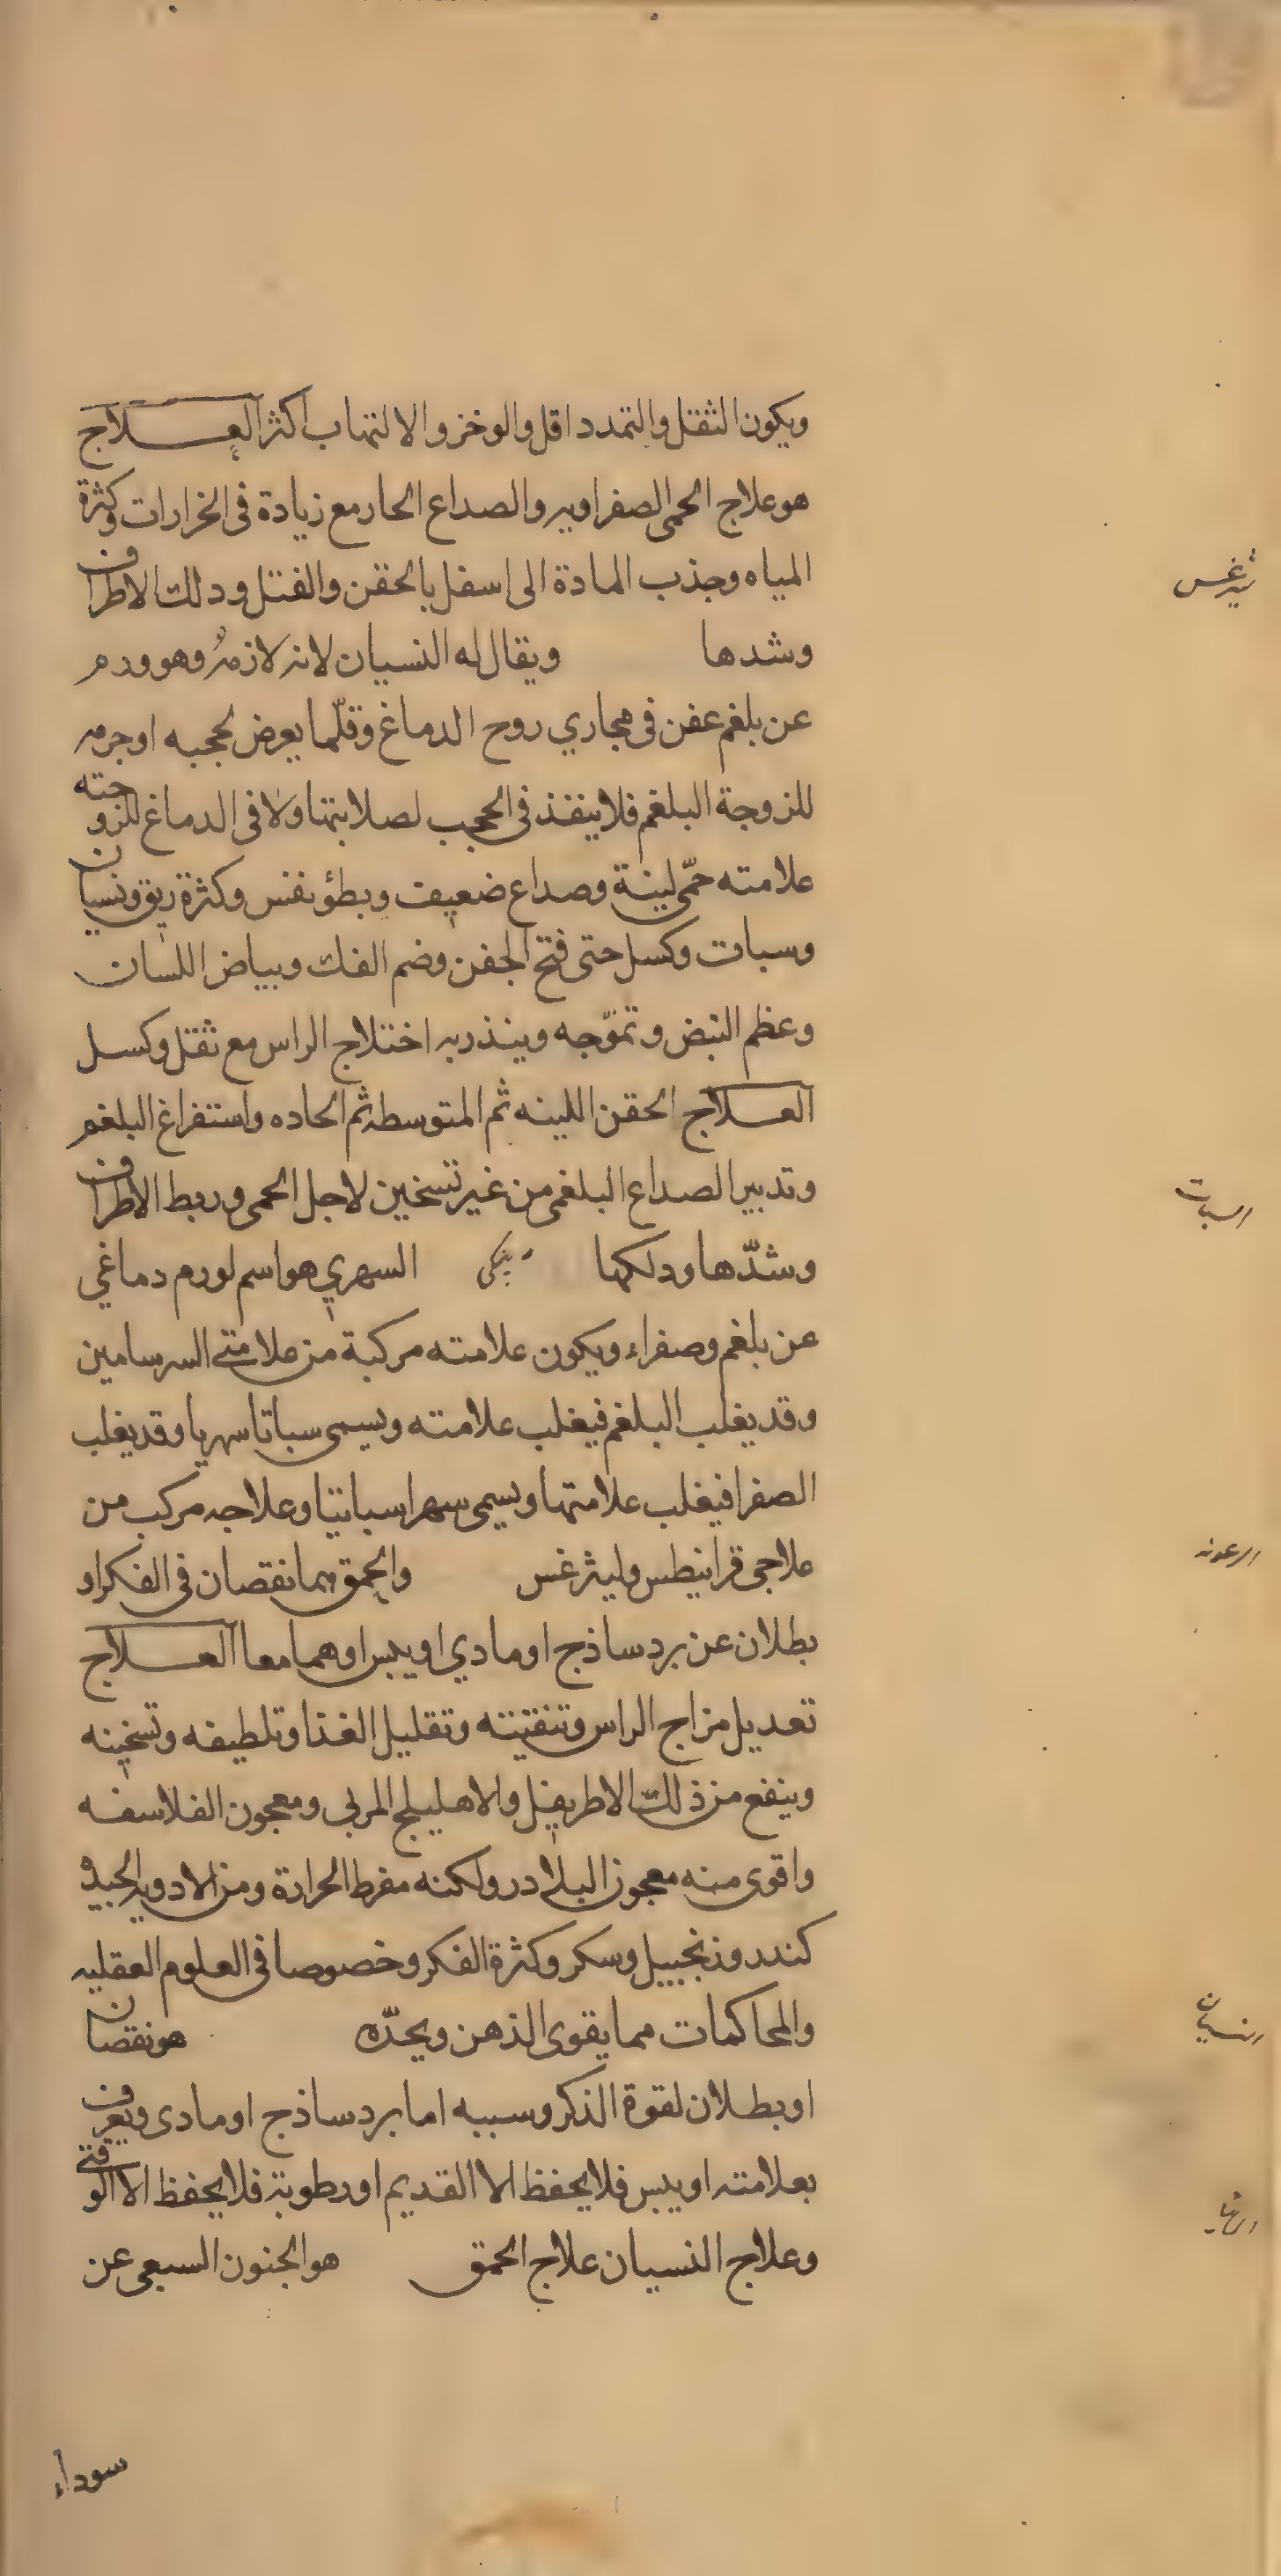 ويكون الثقل والتمدد اقل والوخز والالتهاب اكثر العلاج
هو علاج الحمى الصفراويه والصداع الحار مع زيادة في الخرارات وكثرة
المياه وجذب المادة الى اسفل بالحقن والفتل ودلك الاطراف
ليثرغس
وشدها ويقال له النسيان لانه لازمه وهو ورم
عن بلغم عفن في مجاري روح الدماغ وقلّما يعرض لحجبه او جرمه
للزوجة البلغم فلا ينفذ في الحجب لصلابتها ولا في الدماغ للزوجته
علامته حمّى لينة وصداع ضعيف وبطؤ نفس وكثرة ريق ونسيان
وسبات وكسل حتى فتح الجفن وضم الفك وبياض اللسان
وعظم النبض وتموّجه وينذر به اختلاج الراس مع ثقل وكسل
العلاج الحقن اللينه ثم المتوسطه ثم الحاده واستفراغ البلغم
وتدبير الصداع البلغمي من غير تسخين لاجل الحمى وربط الاطراف
السبات
وشدّها ودلكها السهري هو اسم لورم دماغي
عن بلغم وصفراء ويكون علامته مركبة من علامتي السرسامين
وقد يغلب البلغم فيغلب علامته ويسمى سباتا سهريا وقد يغلب
الصفرا فيغلب علامتها ويسمى سهرا سباتيا وعلاجه مركب من
علاجي قرانيطس وليثرغس والحمق هما نقصان في الفكر او
الرعونه
بطلان عن برد ساذج او مادي او يبس او هما معا العلاج
تعديل مزاج الراس وتنقيته وتقليل الغذا وتلطيفه وتسخينه
وينفع من ذلك الاطريفل والاهليلج المربى ومعجون الفلاسفه
واقوى منه معجون البلادر ولكنه مفرط الحرارة ومن الادويه الجيدة
كندر وزنجبيل وسكر وكثرة الفكر وخصوصا في العلوم العقليه
والمحاكمات مما يقوى الذهن ويحدّه هو نقصان
النسيان
او بطلان لقوة الذكر وسببه اما برد ساذج او مادى ويعرف
بعلامته او يبس فلا يحفظ الا القديم او رطوبة فلا يحفظ الا الوقتي
وعلاج النسيان علاج الحمق هو الجنون السبعى عن
سوداء